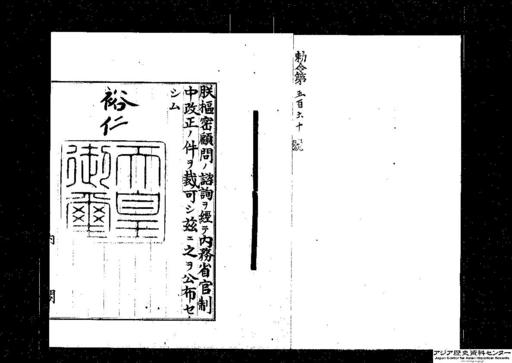 勅令第五百六十號
朕樞密顧問ノ諮詢ヲ經テ内務省官制
中改正ノ件ヲ裁可シ茲ニ之ヲ公布セ
シム
裕仁
天皇
御璽
内 閣
アジア歴史資料センター
Japan Center for Asian Historical Records